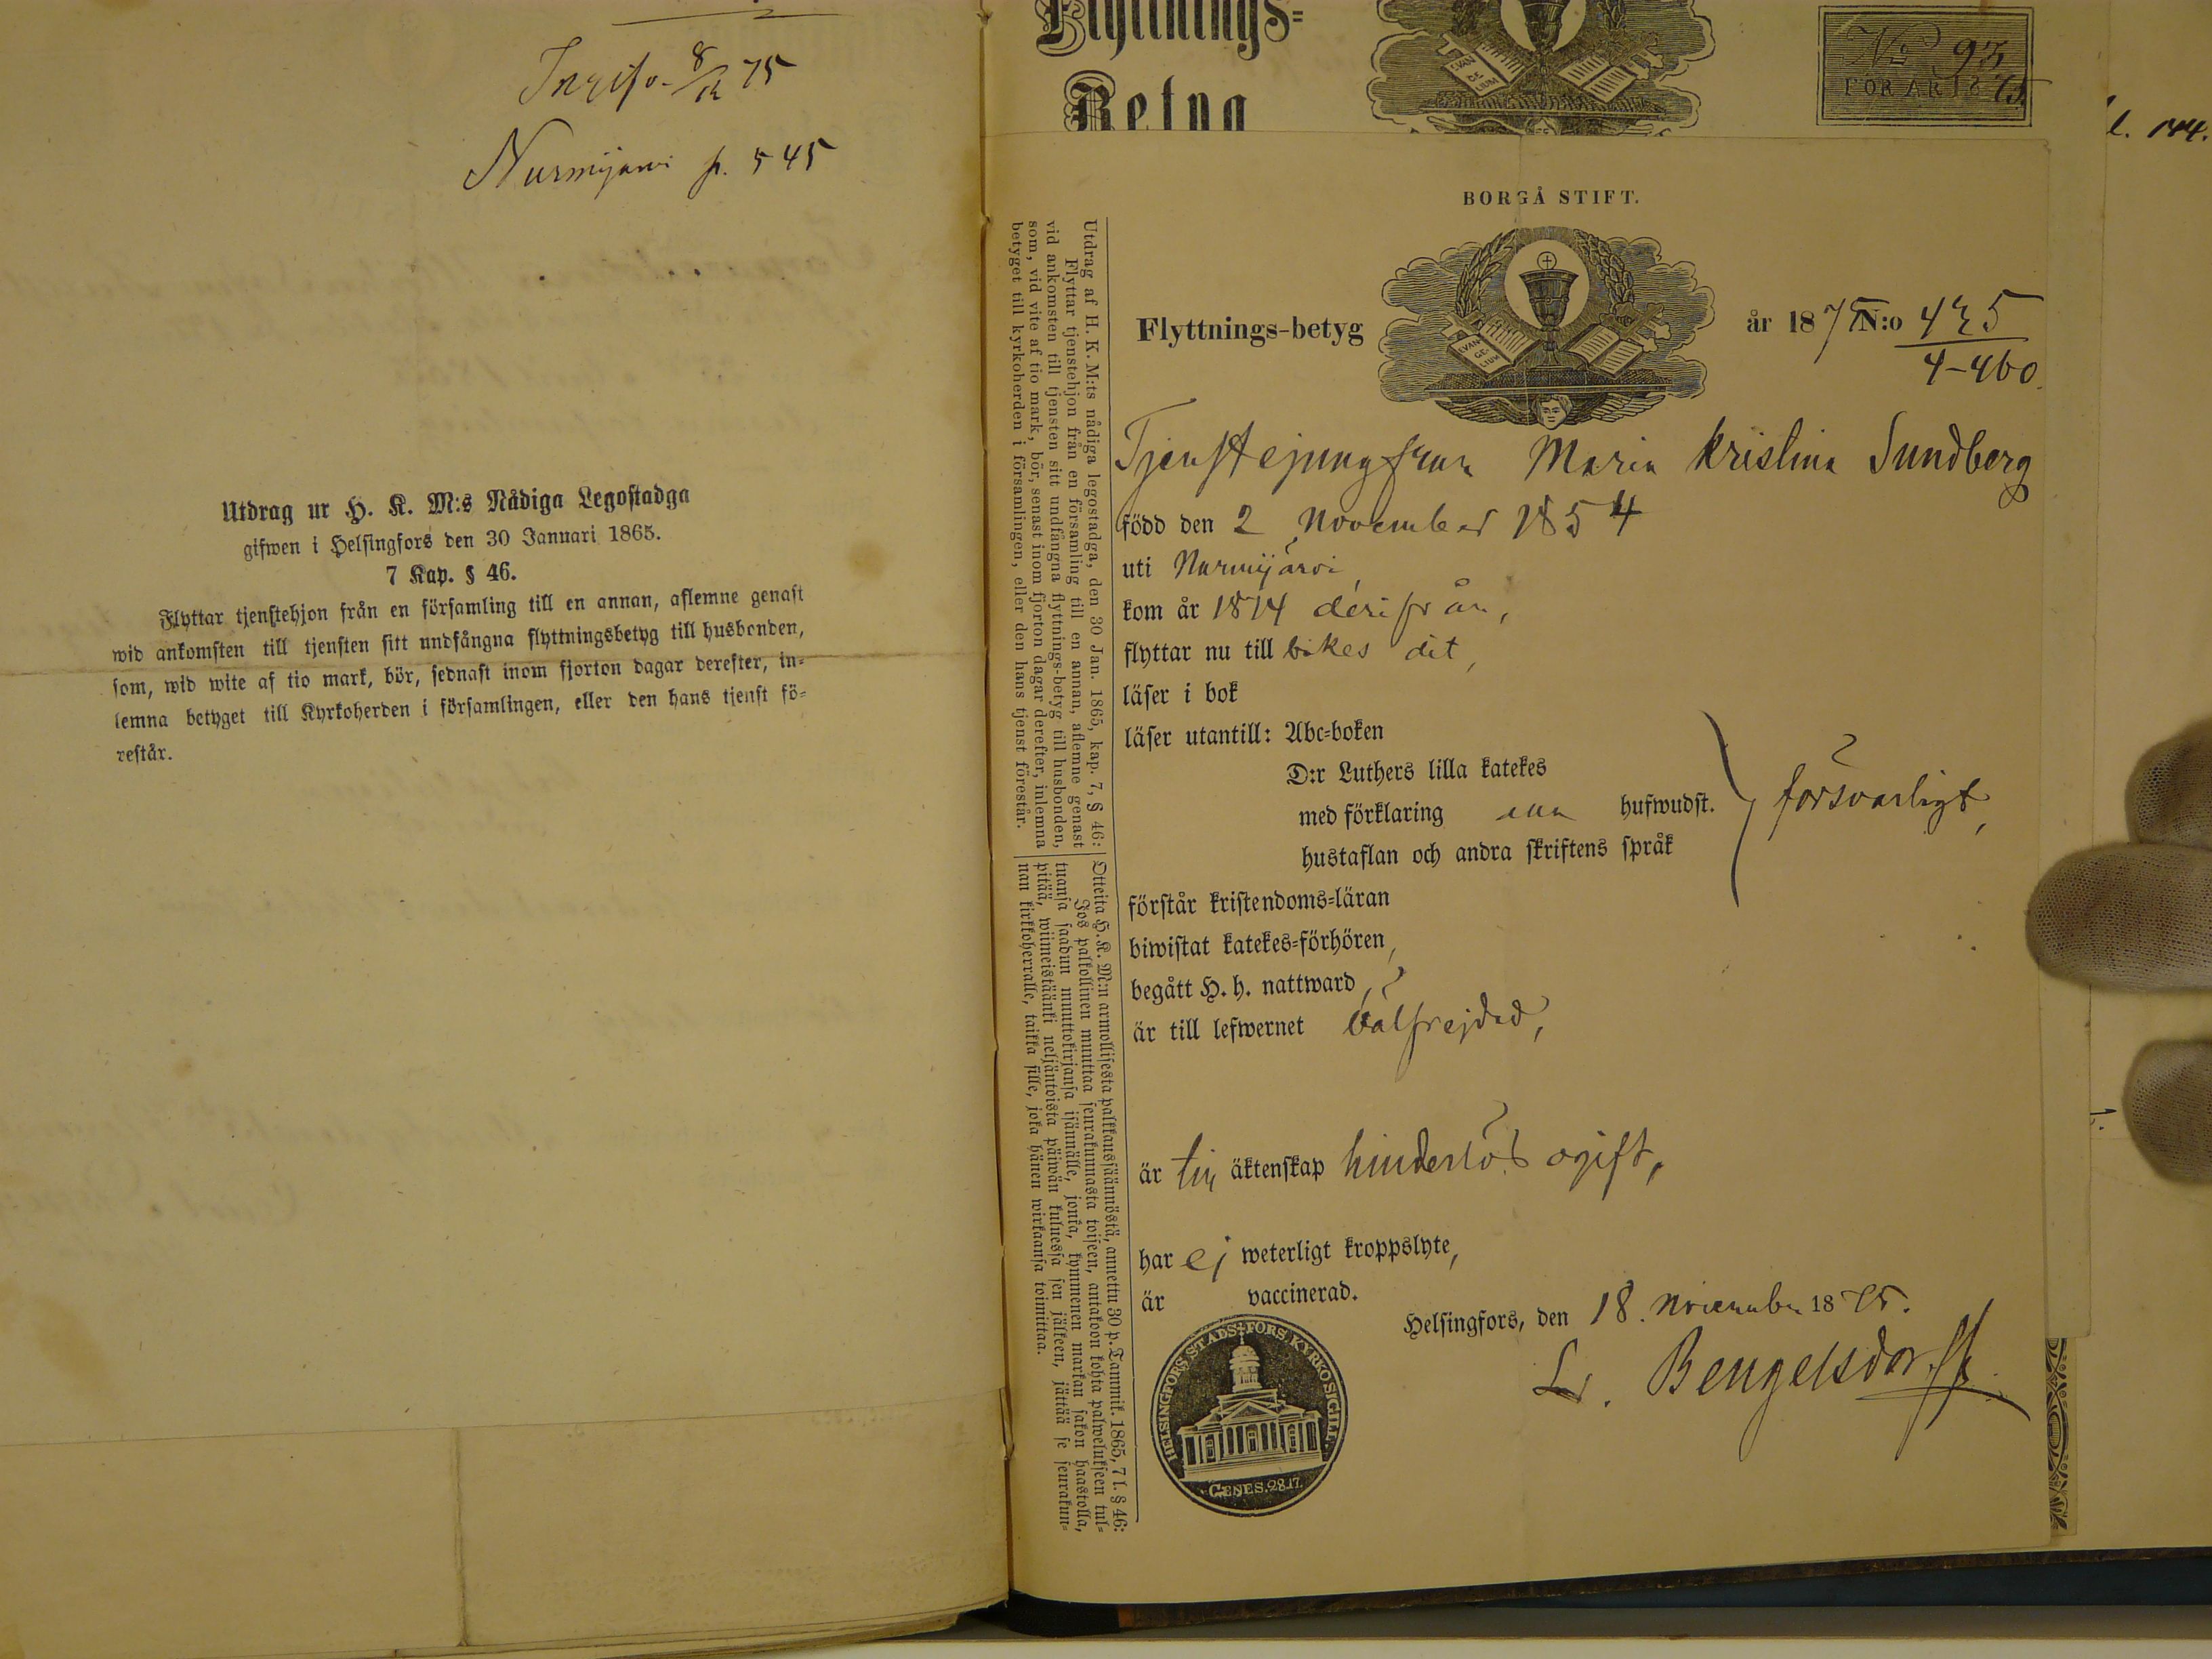 Nurmijarvi p. 545
Utdrag ur H. K. M:s Nådiga Legostadga
gifwen i Helsingfors den 30 Januari 1865.
7 Kap. § 46.
Flyttar tjenstehjon från en församling till en annan, aflemne genast
wid ankomsten till tjensten sitt undfångna flyttningsbetyg till husbonden,
som, wid wite af tio mark, bör, sednast inom fjorton dagar derefter, in-
lemna betyget till Kyrkoherden i församlingen, eller den hans tjenst fö-
restår.
Flyttnings-
FÖR ÅR 1875
BORGÅ STIFT.
EVAN
GE
LIUM
Flyttnings-betyg år 1875 N:o 435
4-460.
Tjenstejungfrun Maria Kristina Sundberg
född den 2 November 1854
uti Nurmijärvi
kom år 1874 derifrån,
flyttar nu till dit,
läser i bok
läser utantill: Abc-boken
D:r Luthers lilla katekes
med förklaring hufwudst.
försvarligt,
hustaflan och andra skriftens språk
förstår kristendoms-läran
biwistat katekes-förhören,
begått H. h. nattward,
är till lefwernet välfrejdad,
är till äktenskap hinderlös ogift,
har ej weterligt kroppslyte,
är vaccinerad.
Helsingfors, den 18. november 1875.
L. Bengelsdorff
HELSINGFORS STADS FÖRS. KYRKOSIGILL.
GENES. 28.17.
Utdrag af H. K. M:ts nådiga legostadga, den 30 Jan. 1865, kap. 7, § 46:
Flyttar tjenstehjon från en församling till en annan, aflemne genast
vid ankomsten till tjensten sitt undfångna flyttnings-betyg till husbonden,
som, vid vite af tio mark, bör, senast inom fjorton dagar derefter, inlemna
betyget till kyrkoherden i församlingen, eller den hans tjenst förestår.
Otteita H. K. M:n armollisesta palkkaussäännöstä, annettu 30 p. Tammik. 1865, 7 l. § 46:
Jos palkollinen muuttaa seurakunnasta toiseen, antakoon kohta palwelukseen tul-
tuansa saadun muuttokirjansa isännälle, jonka, kymmenen markan sakon haastolla,
pitää, wiimeistäänki neljäntoista päiwän kuluessa sen jälkeen, jättää se seurakun-
nan kirkkoherralle, taikka sille, joka hänen wirkaansa toimittaa.